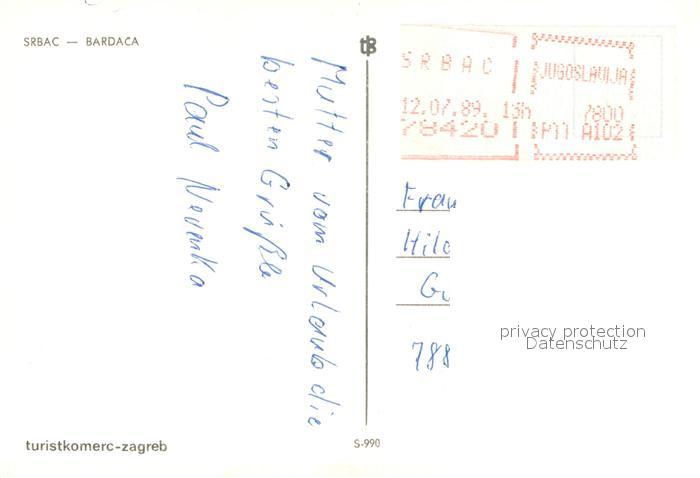 SRBAC — BARDACA
Mutter vom Urlaub die
besten Grüße
Paul Nevenka
turistkomerc-zagreb
S-990
tB
SRBAC
12.07.89. 13h
78420
JUGOSLAVIJA
7800
PTT A102
Frau
Hild
G
788
privacy protection
Datenschutz